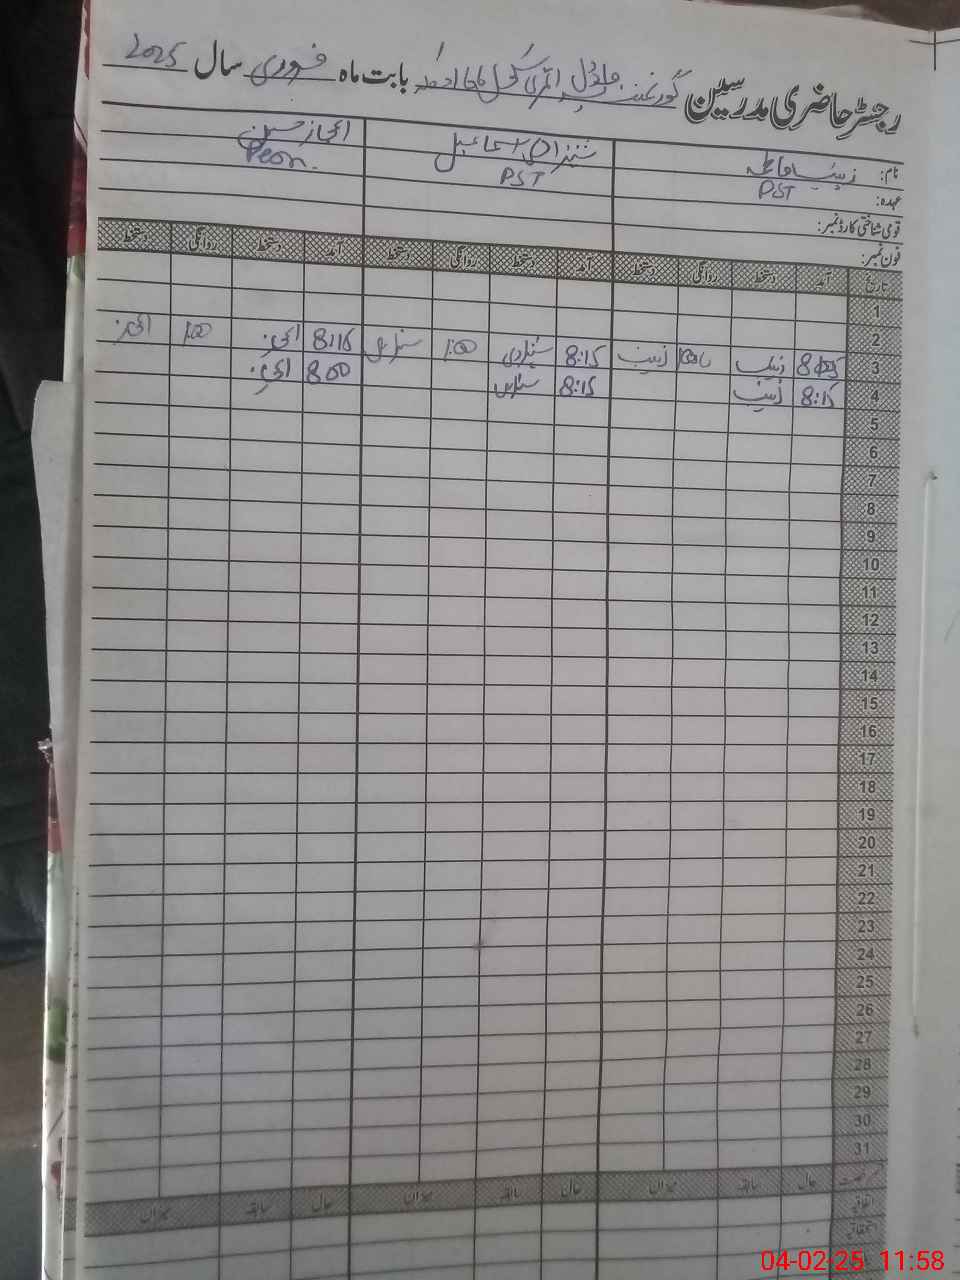 رجسٹر حاضری مدرسین گورنمنٹ ماڈل پرائمری سکول بابت ماہ فروری سال 2025
نام: زینب فاطمہ اسماعیل اعجاز حسین
عہدہ: PST PST Peon.
قومی شناختی کارڈ نمبر:
فون نمبر:
تاریخ آمد دستخط روانگی دستخط آمد دستخط روانگی دستخط آمد دستخط روانگی دستخط
1
2
3 زینب زینب 8:15 1:00 8:15 1:00
4 8:15 زینب 8:15 8:00
5
6
7
8
9
10
11
12
13
14
15
16
17
18
19
20
21
22
23
24
25
26
27
28
29
30
31
رخصت حال سابقہ میزان حال سابقہ میزان حال سابقہ میزان
اتفاقیہ
استحقاقیہ
04-02-25 11:58